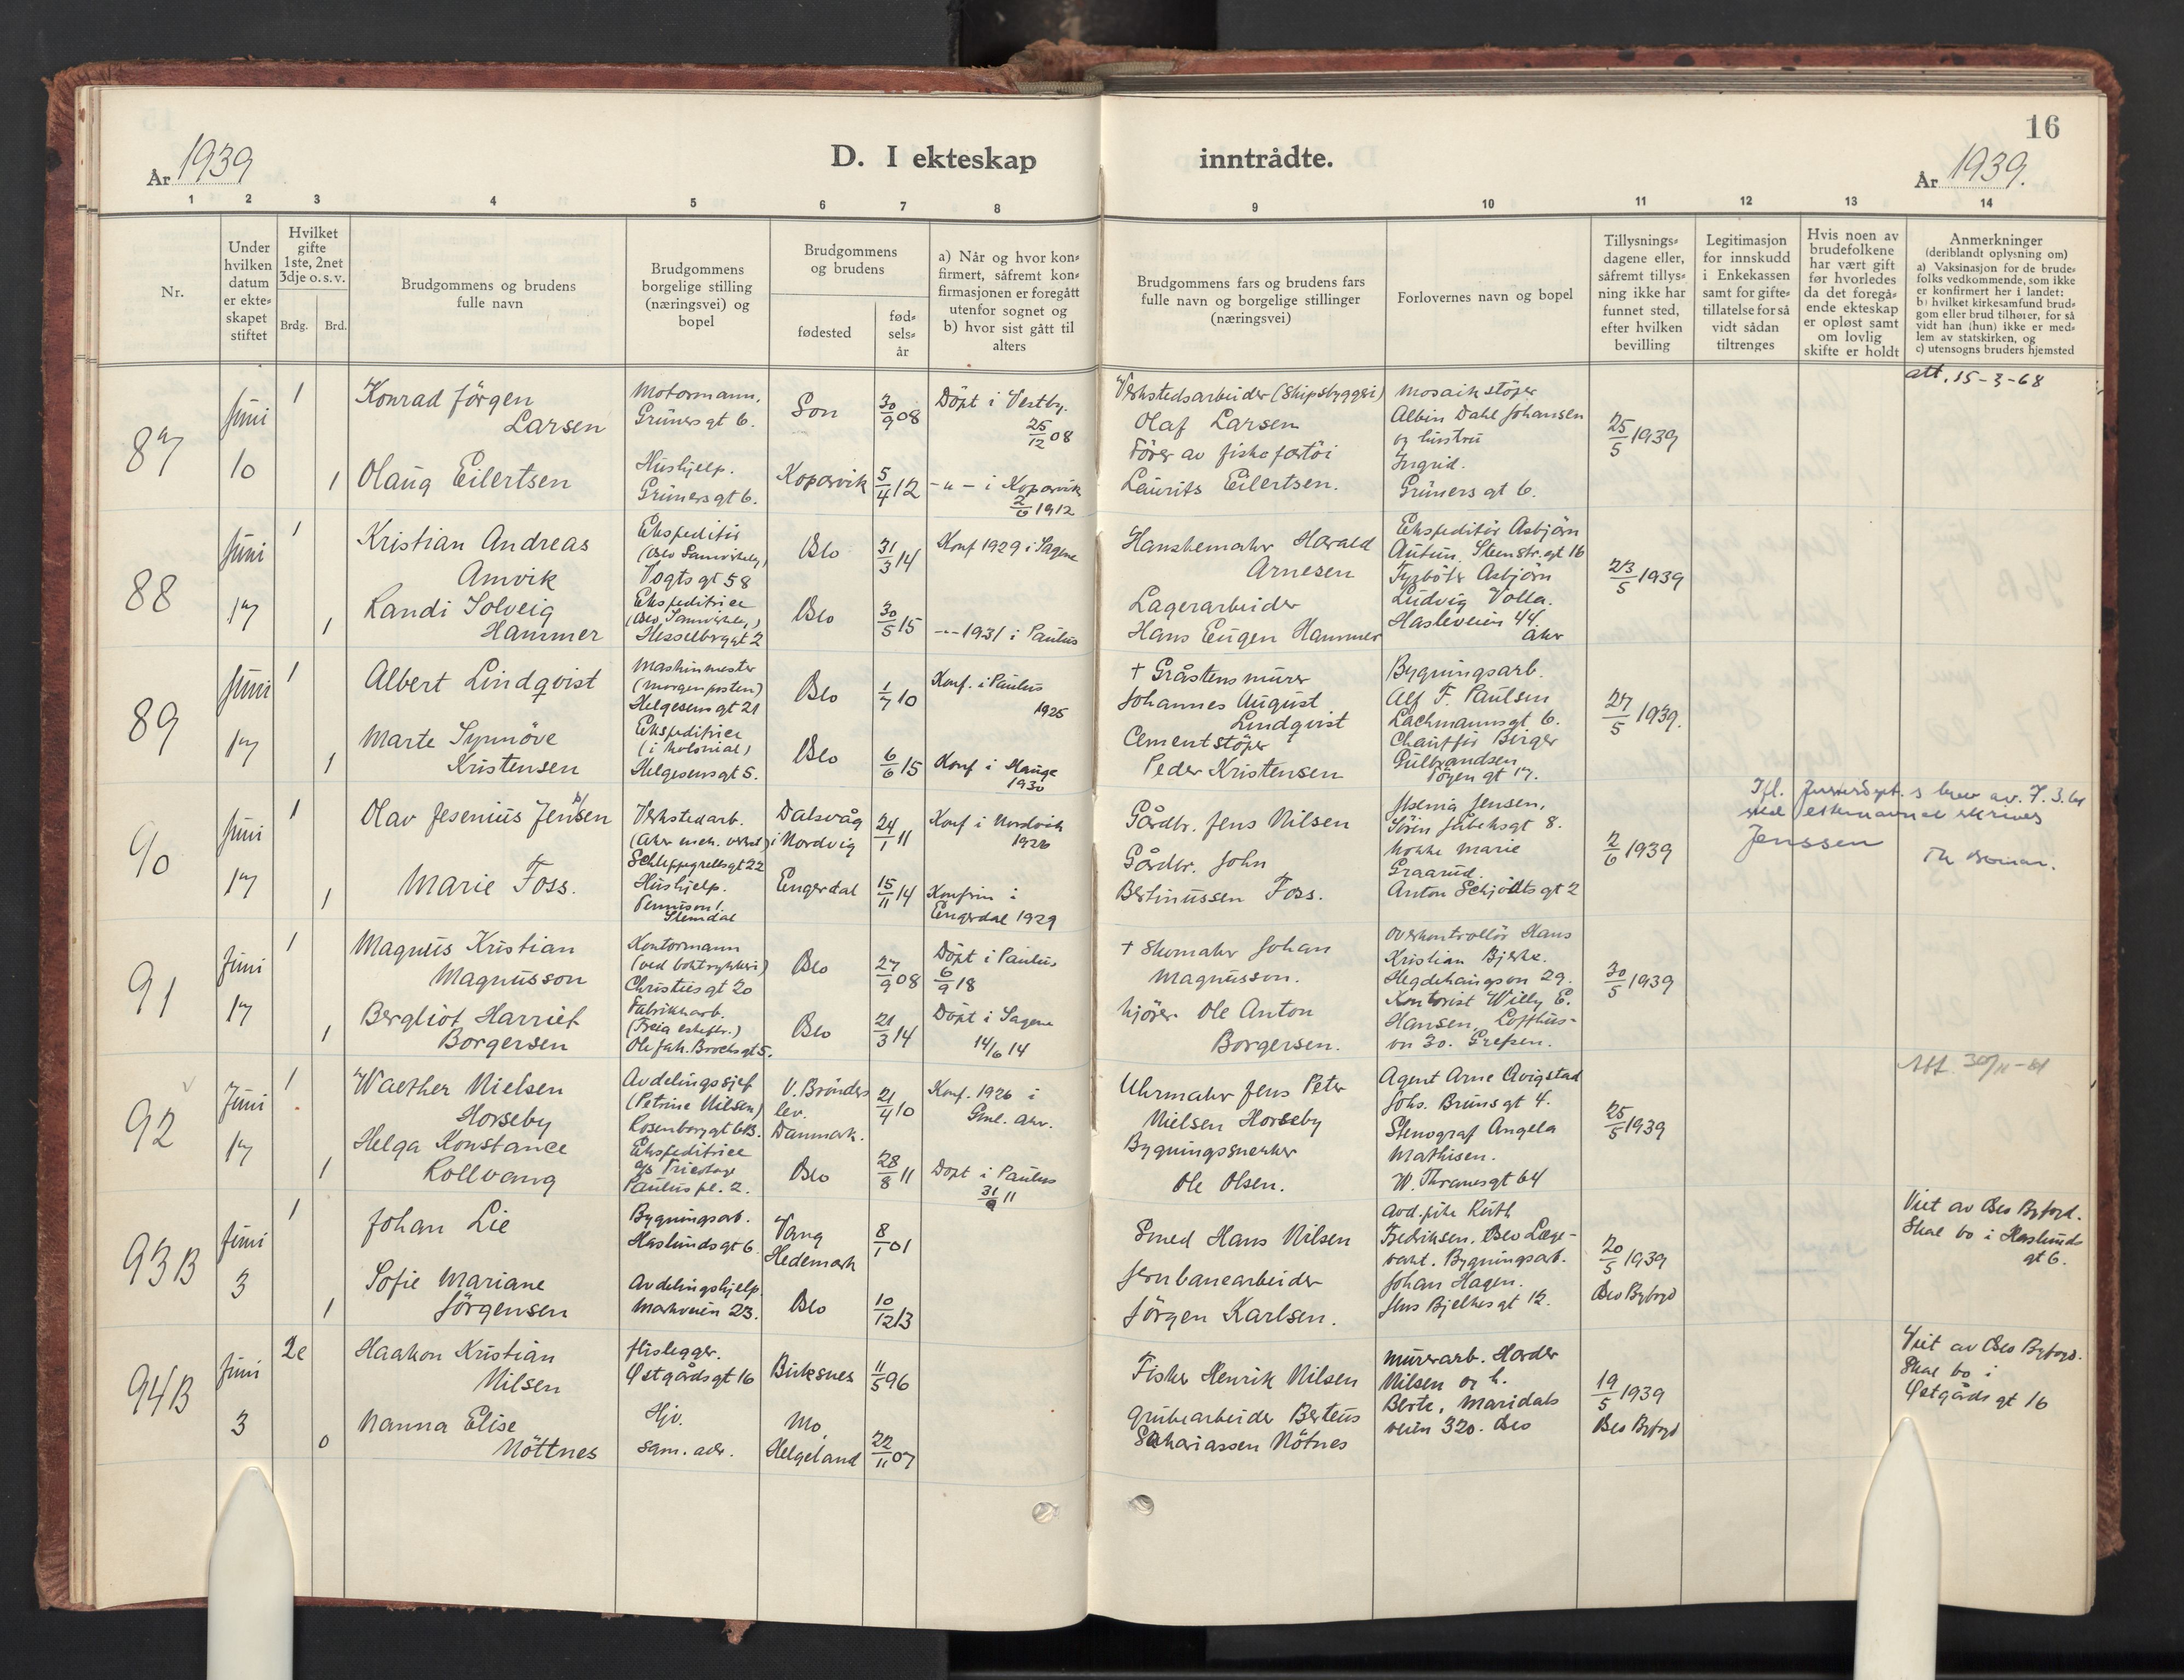 16
År 1939
D. I ekteskap inntrådte.
År 1939.
1 2 3 4 5 6 7 8 9 10 11 12 13 14
Nr.
Under hvilken datum er ekte= skapet stiftet
Hvilket gifte 1ste, 2net 3dje o.s.v.
Brdg. Brd.
Brudgommens og brudens fulle navn
Brudgommens borgelige stilling (næringsvei) og bopel
Brudgommens og brudens
fødested
fød= sels= år
a) Når og hvor kon= firmert, såfremt kon= firmasjonen er foregått utenfor sognet og b) hvor sist gått til alters
Brudgommens fars og brudens fars fulle navn og borgelige stillinger (næringsvei)
Forlovernes navn og bopel
Tillysnings= dagene eller, såfremt tillys= ning ikke har funnet sted, efter hvilken bevilling
Legitimasjon for innskudd i Enkekassen samt for gifte= tillatelse for så vidt sådan tiltrenges
Hvis noen av brudefolkene har vært gift før hvorledes da det foregå= ende ekteskap er opløst samt om lovlig skifte er holdt
Anmerkninger (deriblandt oplysning om) a) Vaksinasjon for de brude= folks vedkommende, som ikke er konfirmert her i landet: b) hvilket kirkesamfund brud= gom eller brud tilhører, for så vidt han (hun) ikke er med= lem av statskirken, og c) utensogns bruders hjemsted
87
Juni 10
1
Konrad Jörgen
Larsen
Motormann.
Grünersgt 6.
Son
30/9 08
Döpt i Vestby.
25/12 08
Verkstedsarbeider (Skipsbyggeri)
Olaf Larsen
Mosaikstöper
Albin Dahl Johansen
og hustru
Ingrid.
Grünersgt 6.
25/5 1939
att. 15-3-68
1
Olaug Eilertsen
Hushjelp.
Grünersgt 6.
Kopervik
5/4 12
-"- i Kopervik
2/6 1912
Förer av fiskefartöi
Laurits Eilertsen.
88
Juni 17
1
Kristian Andreas
Amvik
Ekspeditör
(Oslo Samvirkelag)
Vogtsgt 58
Oslo
31/3 14
Konf 1929 i Sagene
Hanskemaker Harald
Arnesen
Ekspeditör Asbjörn
Autun, Steenstr.gt 16
Asbjörn
Ludvig Volla.
Hasleveien 44.
Aker
23/5 1939
1
Randi Solveig
Hammer
Ekspeditrice
(Oslo Samvirkelag)
Hesselbrggt 2
Oslo
30/5 15
--- 1931 i Paulus
Lagerarbeider
Hans Eugen Hammer
89
Juni 17
1
Albert Lindqvist
Maskinmester
(Morgenposten)
Helgesensgt 21
Oslo
1/7 10
Konf. i Paulus
1925
+ Gråstensmurer
Johannes August
Lindqvist
Bygningsarb.
Alf F. Paulsen
Lachmannsgt 6.
Chaufför Birger
Gulbrandsen
Töyengt 17.
27/5 1939.
1
Marte Synnöve
Kristensen
Ekspeditrice
(i kolonial)
Helgesensgt 5.
Oslo
6/6 15
Konf i Hauge
1930
Cementstöper
Peder Kristensen
90
Juni 17
1
Olav Jesenius Jensen
Verkstedarb.
(Aker mek. verksted)
Schleppegrellsgt 22
Dalsvåg
i Nordvig
24/1 11
Konf i Nordvik
1926
Gårdbr. Jens Nilsen
Jensen,
Sören Jåbeksgt 8.
Kokke Marie
Graarud.
Anton Schjödtsgt 2
2/6 1939
Ifl. Justisdept.s brev av 7.3.61
skal etternavnet skrives
Jenssen
1
Marie Foss.
Hushjelp.
Slemdal
Engerdal
15/11 14
Konfirm i
Engerdal 1929
Gårdbr. John
Bertinussen Foss.
91
Juni 17
1
Magnus Kristian
Magnusson
Kontormann
(ved boktrykkeri)
Christiesgt 20
Oslo
27/9 08
Döpt i Paulus
6/9 18
+ Skomaker Johan
Magnusson.
Overkontrollör Hans
Kristian Bjerke.
Hegdehaugsvn 29.
Kontorist Willy E.
Hansen, Lofthus-
vn 30. Grefsen.
30/5 1939
1
Bergliot Harriet
Borgersen
Fabrikkarb.
(Freia eskefbr.)
Ole Joh. Brochsgt 5.
Oslo
21/3 14
Döpt i Sagene
14/6 14
Kjörer Ole Anton
Borgersen.
92
Juni 17
1
Walther Nielsen
Horseby
Avdelingssjef
(Petrine Nilsen)
Rosenborggt 6B.
V. Brönders
lev.
Danmark.
21/4 10
Konf. 1926 i
Gml. Aker.
Uhrmaker Jens Peter
Nielsen Horseby
Agent Arne Qvigstad
Johs. Brunsgt 4.
Stenograf Angela
Mathisen.
W. Thranesgt 64
25/5 1939
Att. 30/11-61
1
Helga Konstance
Rollvang
Ekspeditrice
A/S Tricotage
Pauluspl. 2.
Oslo
28/8 11
Döpt i Paulus
31/9 11
Bygningssnekker
Ole Olsen.
93B
Juni 3
1
Johan Lie
Bygningsarb.
Haslundsgt 6.
Vang
Hedemark
8/1 01
Smed Hans Nilsen
Avd.pike Ruth
Fredriksen, Oslo Læge-
vakt. Bygningsarb.
Johan Hagen.
Jens Bjelkesgt 12.
20/5 1939
Oslo Byfogd
Viet av Oslo Byfogd.
Skal bo i Haslunds
gt 6.
1
Sofie Mariane
Jörgensen
Avdelingshjelp
Markveien 23.
Oslo
10/12 13
Jernbanearbeider
Jörgen Karlsen.
94B
Juni 3
2e
Haakon Kristian
Nilsen
Flislegger.
Østgårdsgt 16
Buksnes
11/5 96
Fisker Henrik Nilsen
Murerarb. Hårder
Nilsen og h.
Berte, Maridals
veien 320. Oslo
19/5 1939
Oslo Byfogd
Viet av Oslo Byfogd.
Skal bo i
Østgårdsgt 16
0
Nanna Elise
Nöttnes
Hjv.
sam. adr.
Mo,
Helgeland
22/11 07
Grubearbeider Berteus
Sakariassen Nötnes